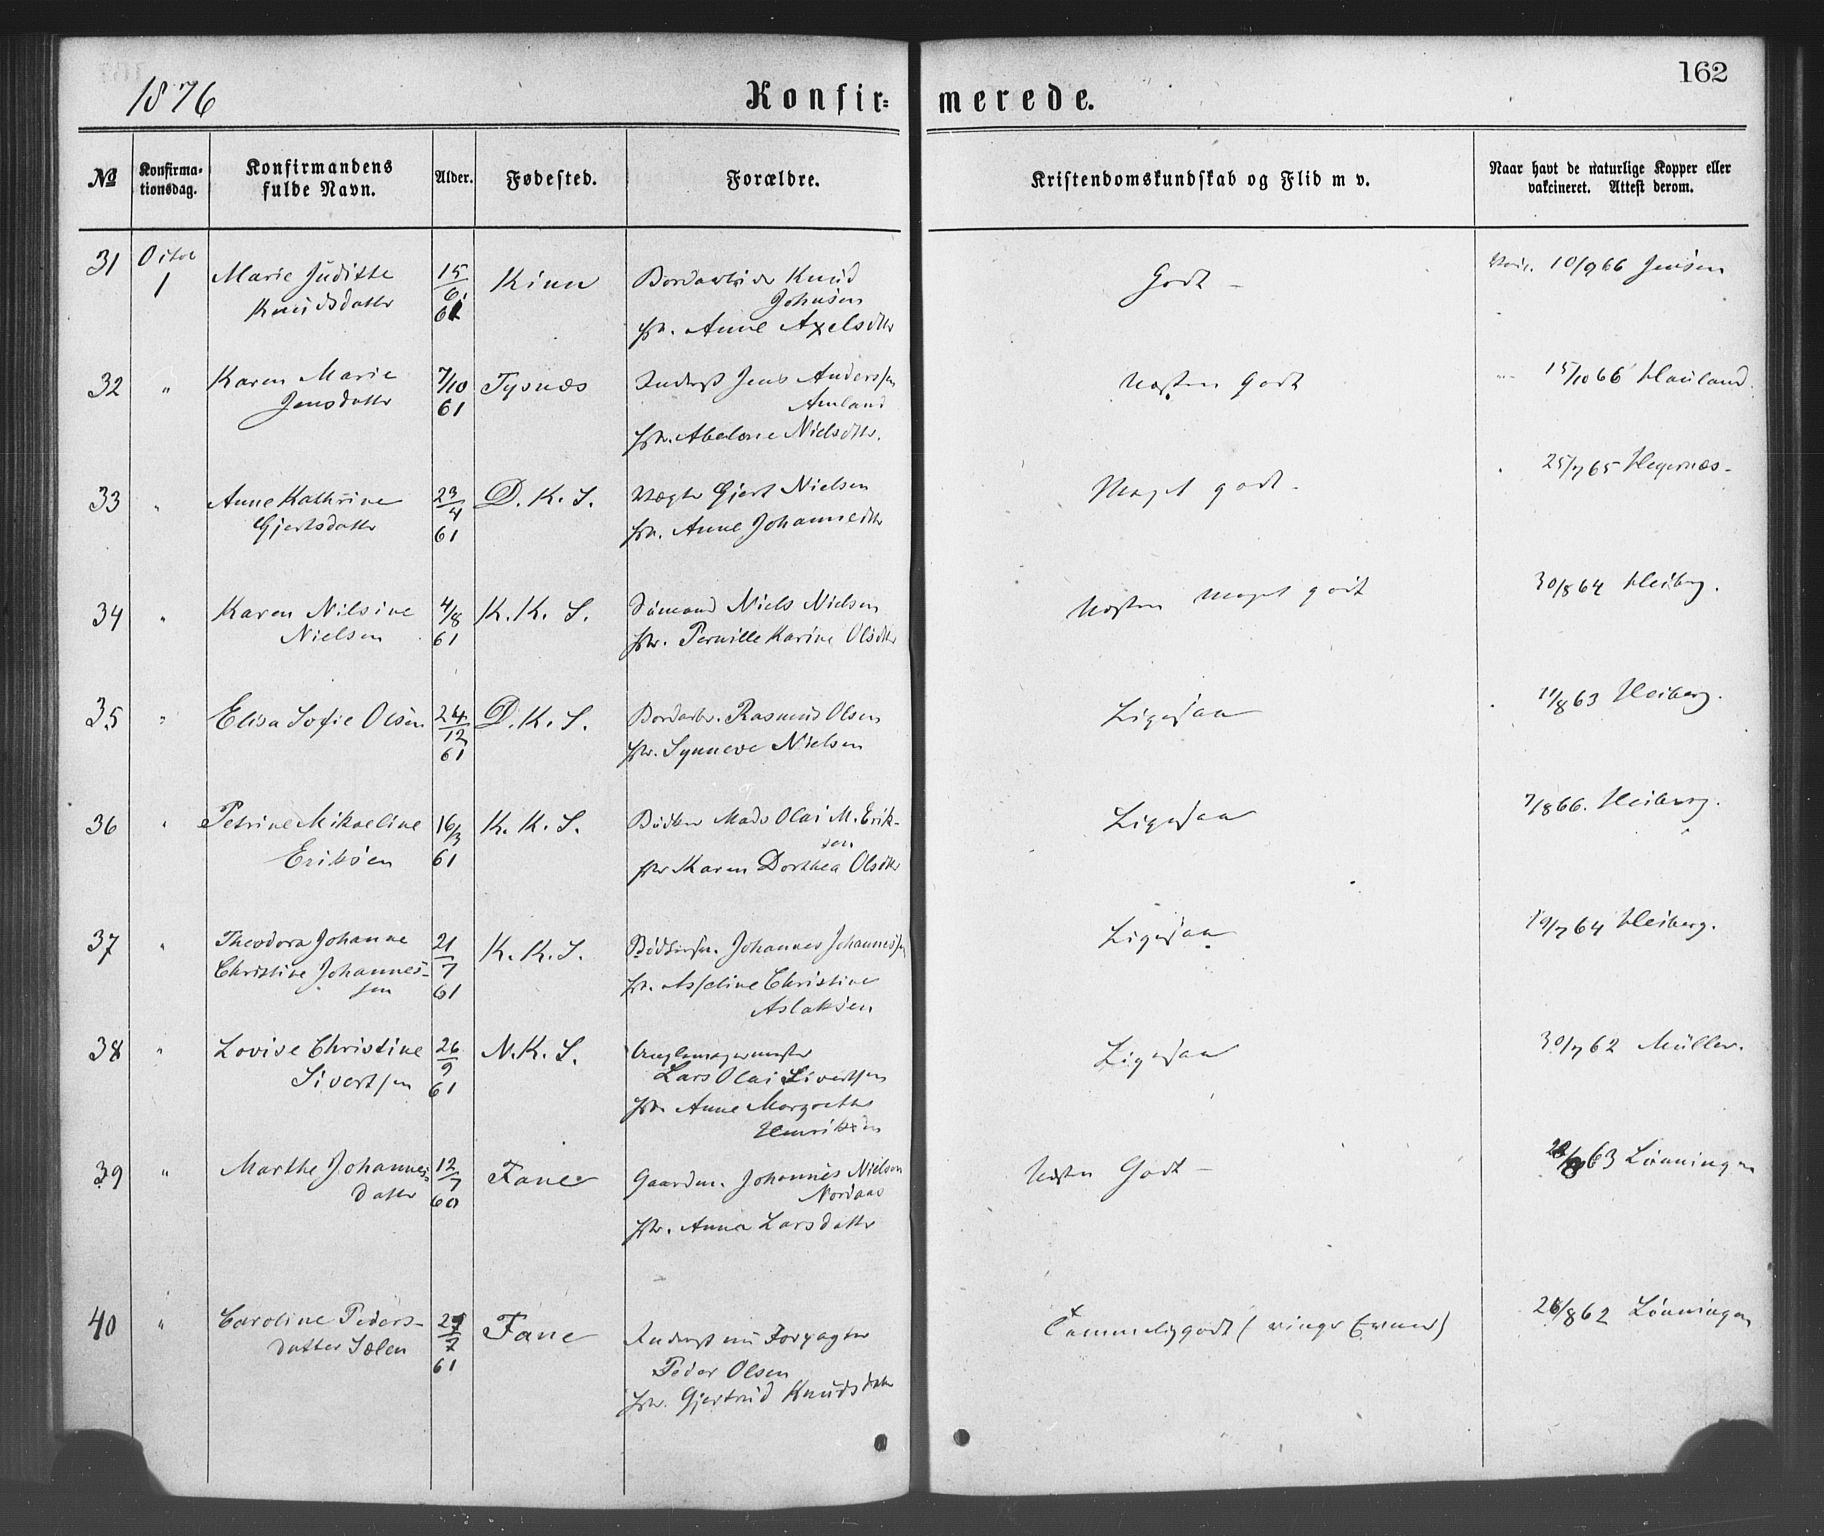 1876
Konfir=
merede.
162
№
Konfirma-
tionsdag.
Konfirmandens
fulde Navn.
Alder.
Fødested.
Forældre.
Kristendomskundskab og Flid m v.
Naar havt de naturlige Kopper eller
vakcineret. Attest derom.
31 1 Marie Juditte Knudsdattr
15/6 61 Kinn
Knud Johnsen
Anne Axelsdttr
Godt
10/9 66 Jensen
32 " Karen Marie Jensdattr
7/10 61 Tysnæs
Jens Anderssen
Amland
Abelone Nielsdttr.
Næsten Godt
15/10 66 Hauland.
33 " Anne Kathrine Gjertsdattr
23/4 61 D. K. S.
Vægter Gjert Nielsen
Anne Johannedttr
Meget godt
25/7 65 Hegernæs
34 " Karen Nilsine Nielsen
4/8 61 K. K. S.
Niels Nielsen
Pernille Karine Olsdttr
Næsten meget godt
30/8 64 Heiberg.
35 " Elisa Sofie Olsen
24/12 61 D. K. S.
Bordarb. Rasmus Olsen
Synneve Nielsen
Ligesaa
11/8 63 Heiberg.
36 " Petrine Mikaeline Eriksen
16/3 61 K. K. S.
Bødker Mads Olai M. Erik-
sen
Karen Dorthea Olsdttr
Ligesaa
7/8 66. Heiberg.
37 " Theodora Johanne
Christine Johannes-
sen
21/7 61 K. K. S.
Johannes Johannessen
Christine
Aslaksen
Ligesaa
19/7 64 Heiberg.
38 " Lovise Christine Sivertsen
26/9 61 N. K. S.
Lars Olai Sivertsen
Anne Margrethe
Henriksen
Ligesaa
30/7 62 Müller.
39 " Marthe Johannes-
datter
12/7 60 Fane
Gaardm. Johannes Nielsen
Nordaas
Anna Larsdattr
Næsten Godt
63 Lønningen
40 " Caroline Peders-
datter Sælen
61 Fane
nu Forpagter
Peder Olsen
Gjertrud Knudsdatter
Temmelig godt (ringe Evner)
26/8 62 Lønningen